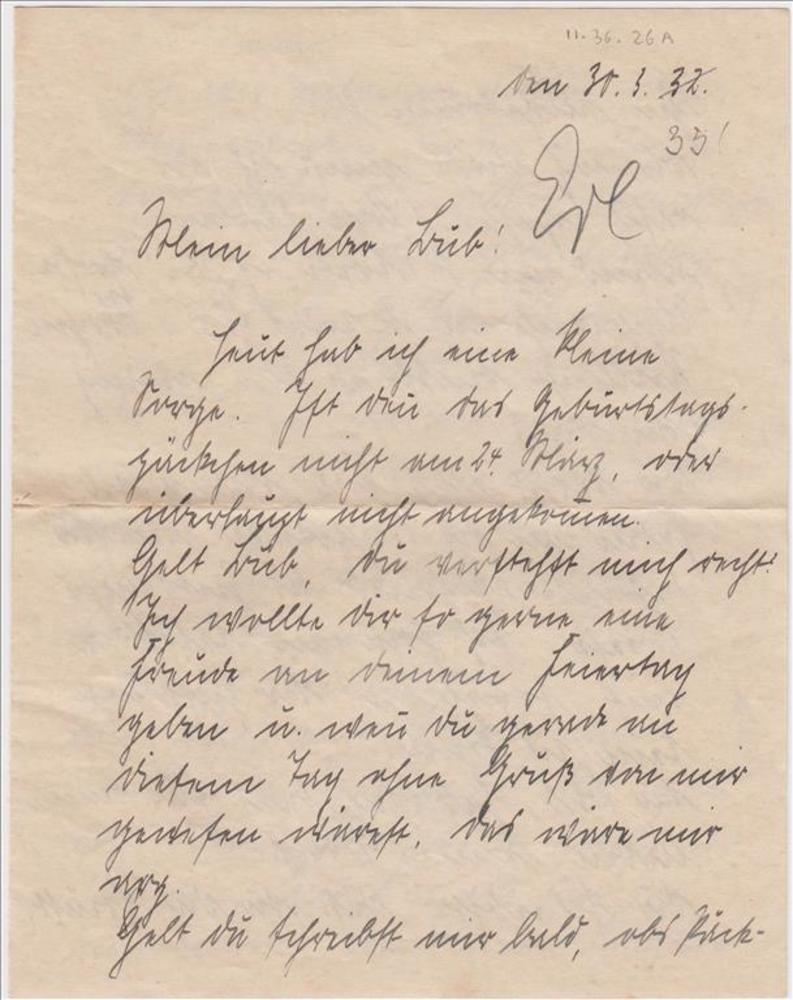 11.36.26A
den 30.3.32.
33!
Erl
Mein lieber Bub!
Heut hab ich eine kleine
Sorge. Ist den̄ das Geburtstags-
päckchen nicht am 24. März, oder
überhaupt nicht angekom̄en.
Gelt Bub, Du verstehst mich recht!
Ich wollte dir so gerne eine
Freude an deinem Feiertag
geben u. wen̄ Du gerade an
diesem Tag ohne Gruß von mir
gewesen wärest, das wäre mir
arg.
Gelt du schreibst mir bald, obs Päck-